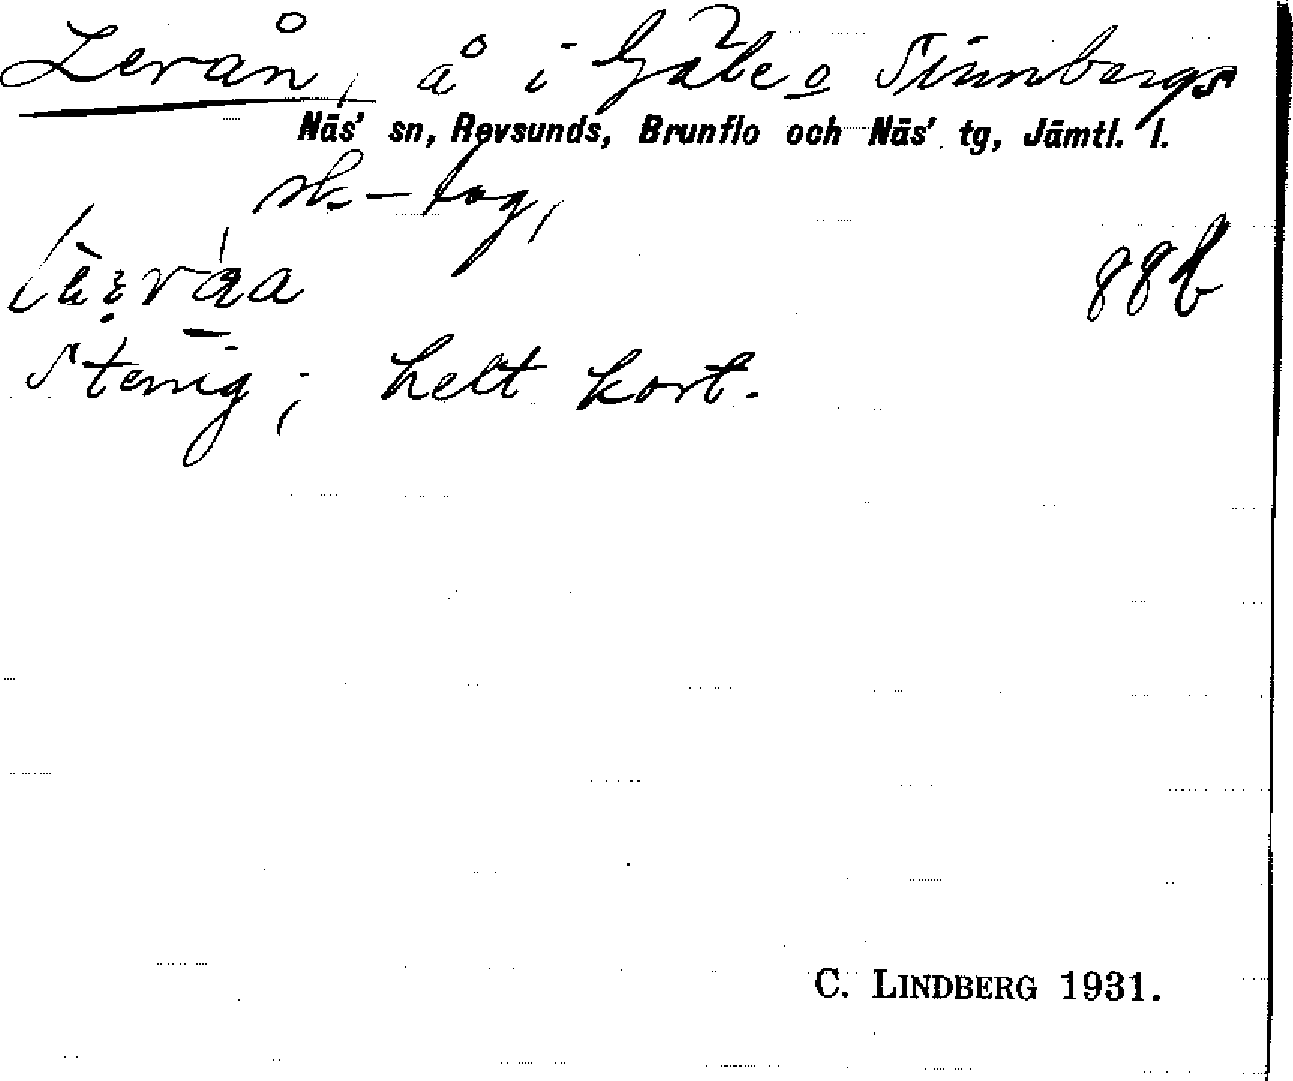 Levån, å i Gåle o Sinnbergs
Näs' sn, Revsunds, Brunflo och Näs' tg, Jämtl. l.
sk-lag,
88b
Stenig; helt kort.
C. LINDBERG 1931.